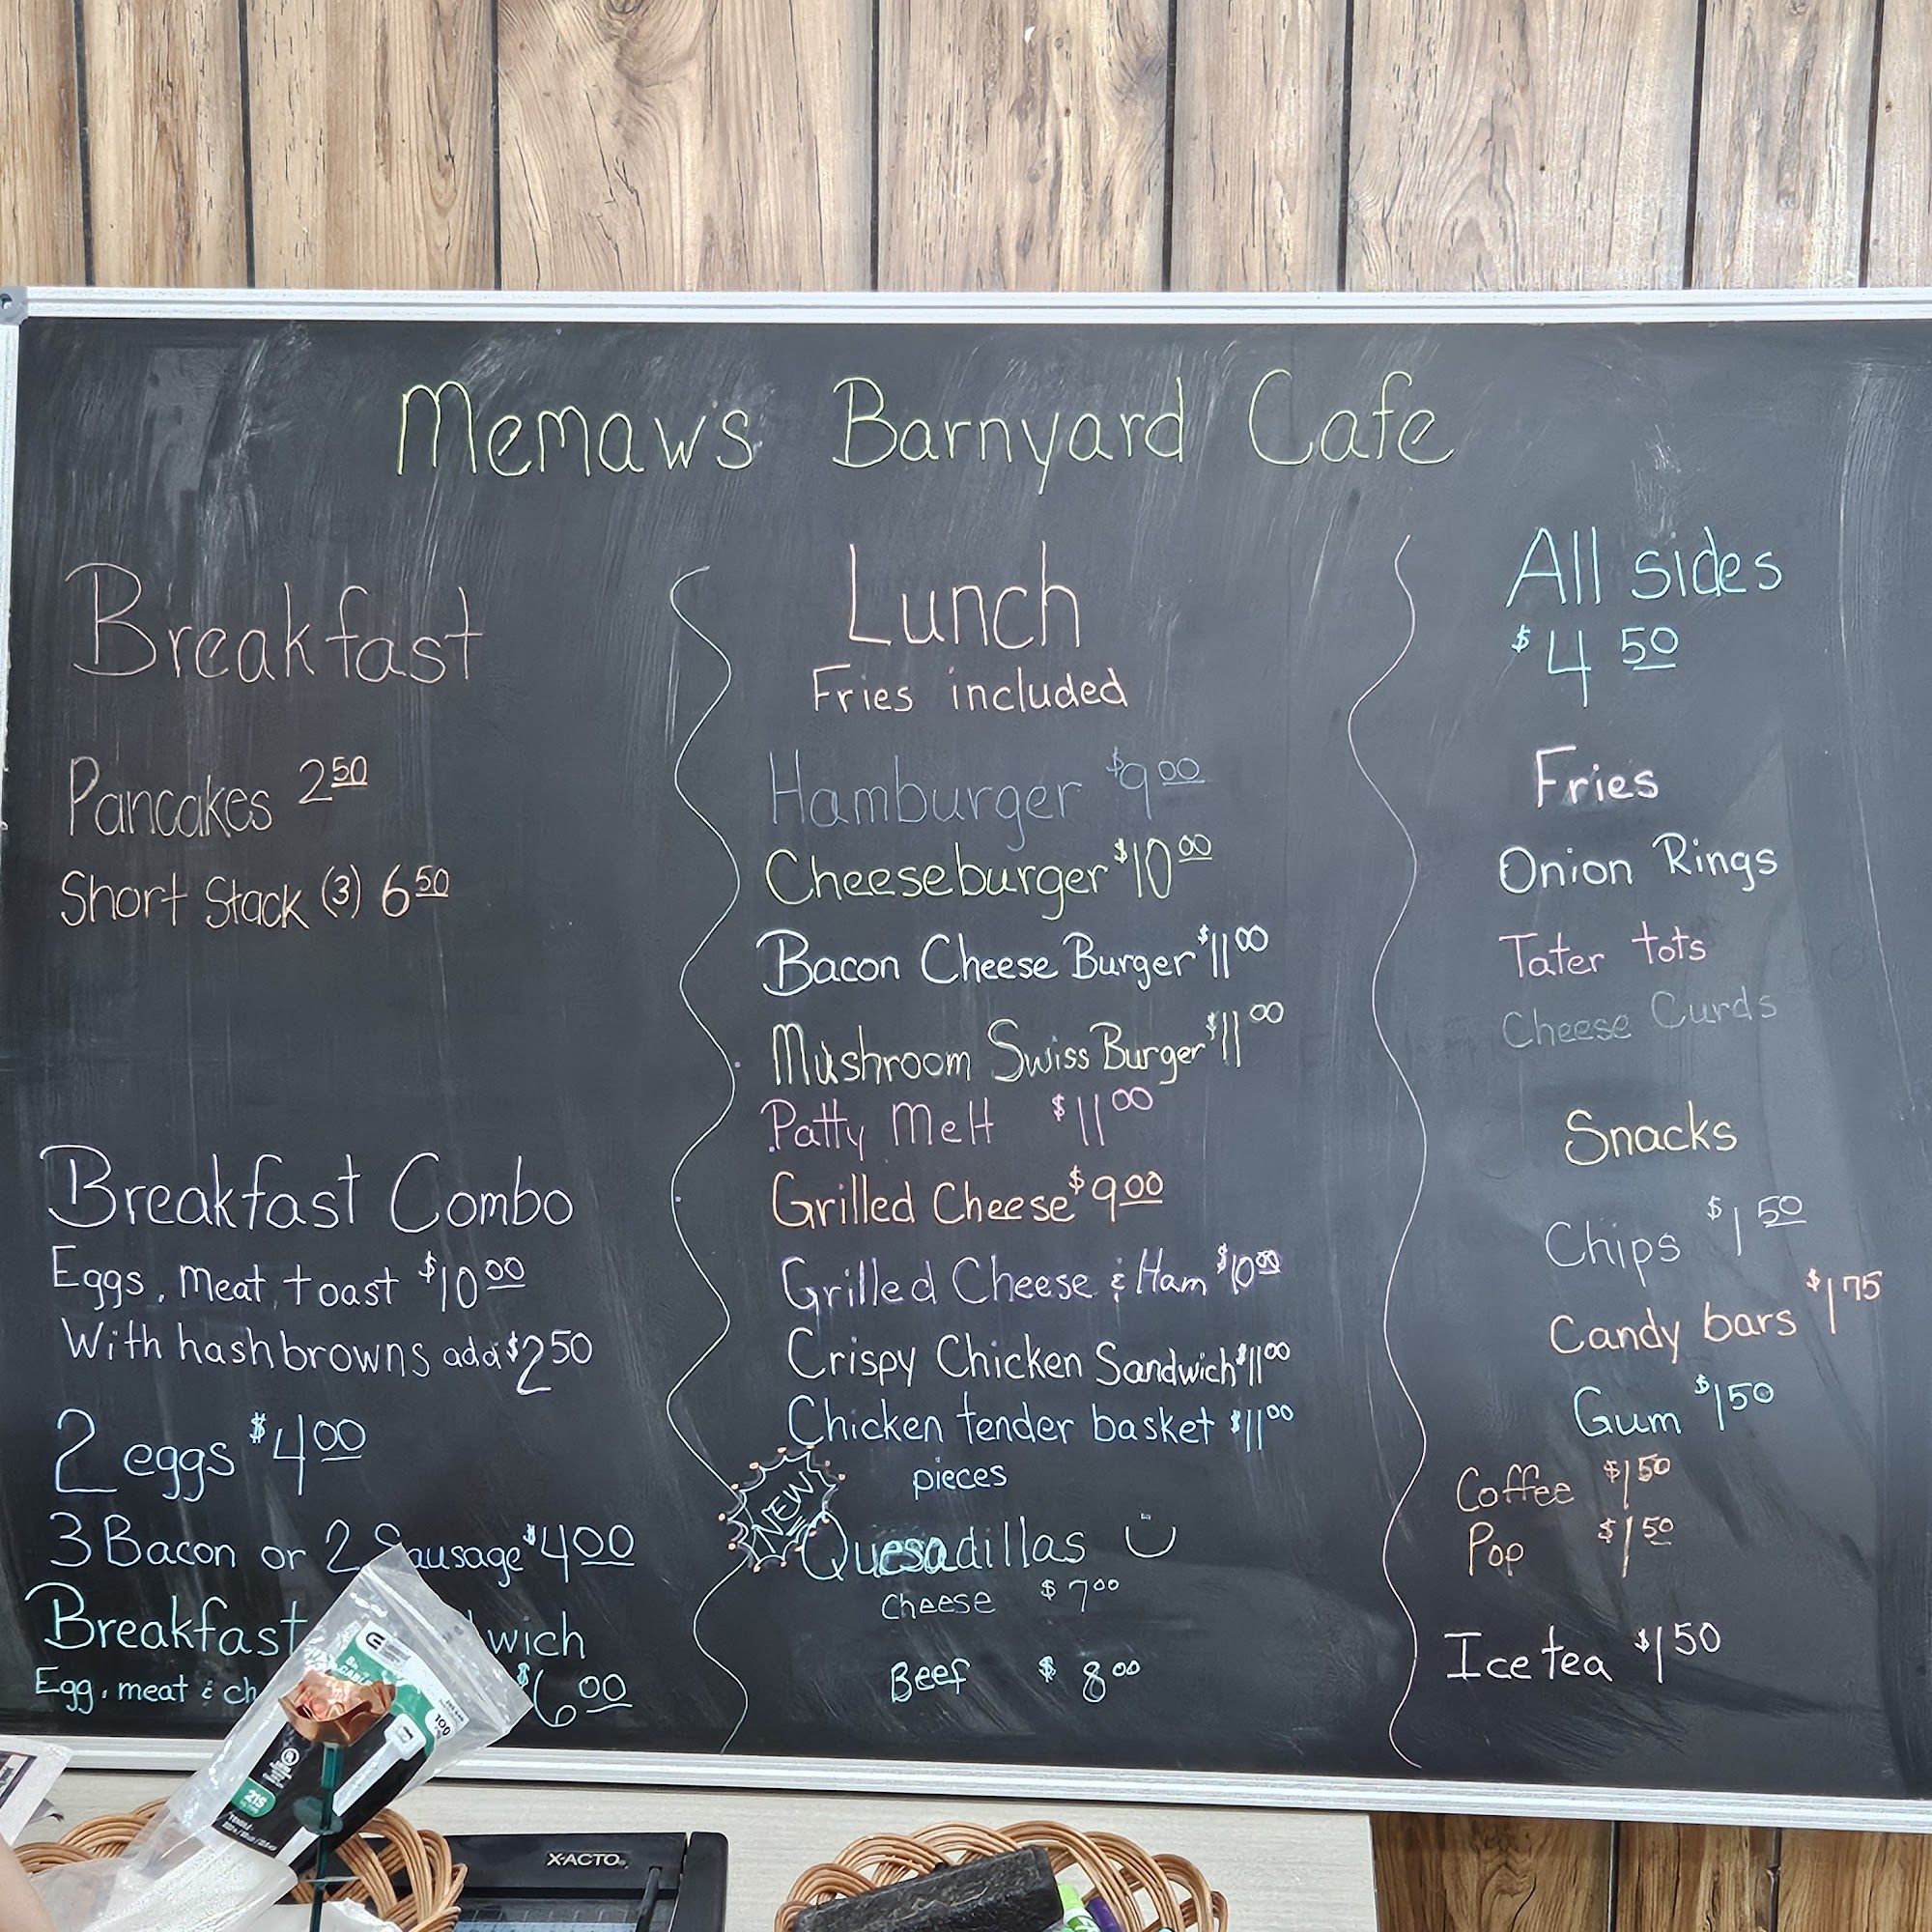 Memaws Barnyard Cafe
Breakfast
Pancakes 2.50
Short Stack (3) 6.50
Breakfast Combo
Eggs, meat, toast $10.00
With hashbrowns add $2.50
2 eggs $4.00
3 Bacon or 2 Sausage $4.00
Breakfast wich
Egg, meat & ch $6.00
Lunch
Fries included
Hamburger $9.00
Cheeseburger $10.00
Bacon Cheese Burger $11.00
Mushroom Swiss Burger $11.00
Patty Melt $11.00
Grilled Cheese $9.00
Grilled Cheese & Ham $10.00
Crispy Chicken Sandwich $11.00
Chicken tender basket $11.00
pieces
NEW
Quesadillas
cheese $7.00
Beef $8.00
All sides
$4.50
Fries
Onion Rings
Tater tots
Cheese Curds
Snacks
Chips $1.50
Candy bars $1.75
Gum $1.50
Coffee $1.50
Pop $1.50
Ice tea $1.50
100
21S
X-ACTO